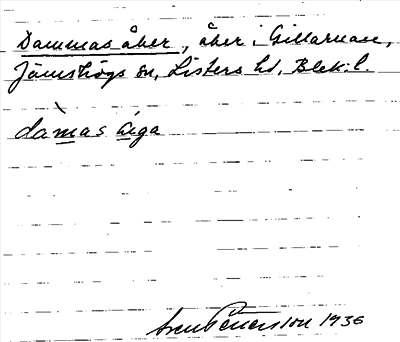 Dammas åker, åker i Gillaruna,
Jämshögs sn, Listers hd, Blek. l.
dàmas åga
Sven Benson 1936